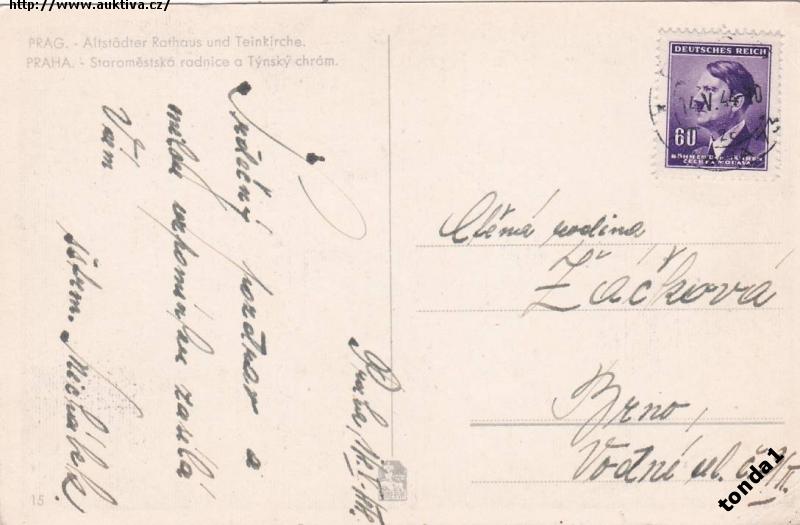 http://www.auktiva.cz/
PRAG. - Altstädter Rathaus und Teinkirche.
PRAHA. - Staroměstská radnice a Týnský chrám.
DEUTSCHES REICH
60
BÖHMEN UND MÄHREN
ČECHY A MORAVA
14.V.44
Srdečný pozdrav a
milou vzpomínku zasílá
Vám
Michálek
Praha,
Ctěná rodina
Žáčková
Brno,
Vodní ul. č.
15
tonda1